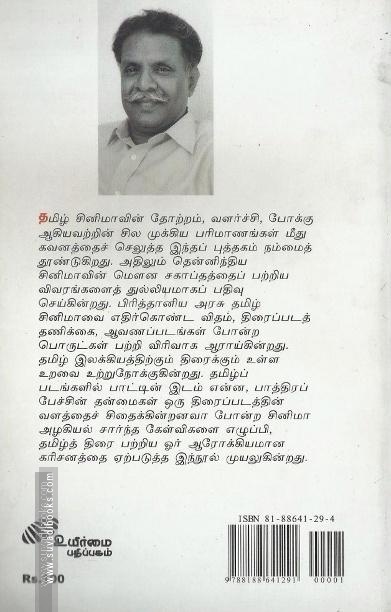 தமிழ் சினிமாவின் தோற்றம், வளர்ச்சி, போக்கு
ஆகியவற்றின் சில முக்கிய பரிமாணங்கள் மீது
கவனத்தைச் செலுத்த இந்தப் புத்தகம் நம்மைத்
தூண்டுகிறது. அதிலும் தென்னிந்திய
சினிமாவின் மௌன சகாப்தத்தைப் பற்றிய
விவரங்களைத் துல்லியமாகப் பதிவு
செய்கின்றது. பிரித்தானிய அரசு தமிழ்
சினிமாவை எதிர்கொண்ட விதம், திரைப்படத்
தணிக்கை, ஆவணப்படங்கள் போன்ற
பொருட்கள் பற்றி விரிவாக ஆராய்கின்றது.
தமிழ் இலக்கியத்திற்கும் திரைக்கும் உள்ள
உறவை உற்றுநோக்குகின்றது. தமிழ்ப்
படங்களில் பாட்டின் இடம் என்ன, பாத்திரப்
பேச்சின் தன்மைகள் ஒரு திரைப்படத்தின்
வளத்தைச் சிதைக்கின்றனவா போன்ற சினிமா
அழகியல் சார்ந்த கேள்விகளை எழுப்பி,
தமிழ்த் திரை பற்றிய ஓர் ஆரோக்கியமான
கரிசனத்தை ஏற்படுத்த இந்நூல் முயலுகின்றது.
ISBN 81-88641-29-4
உயிர்மை
பதிப்பகம்
9 788188 641291 00001
www.suvadibooks.com